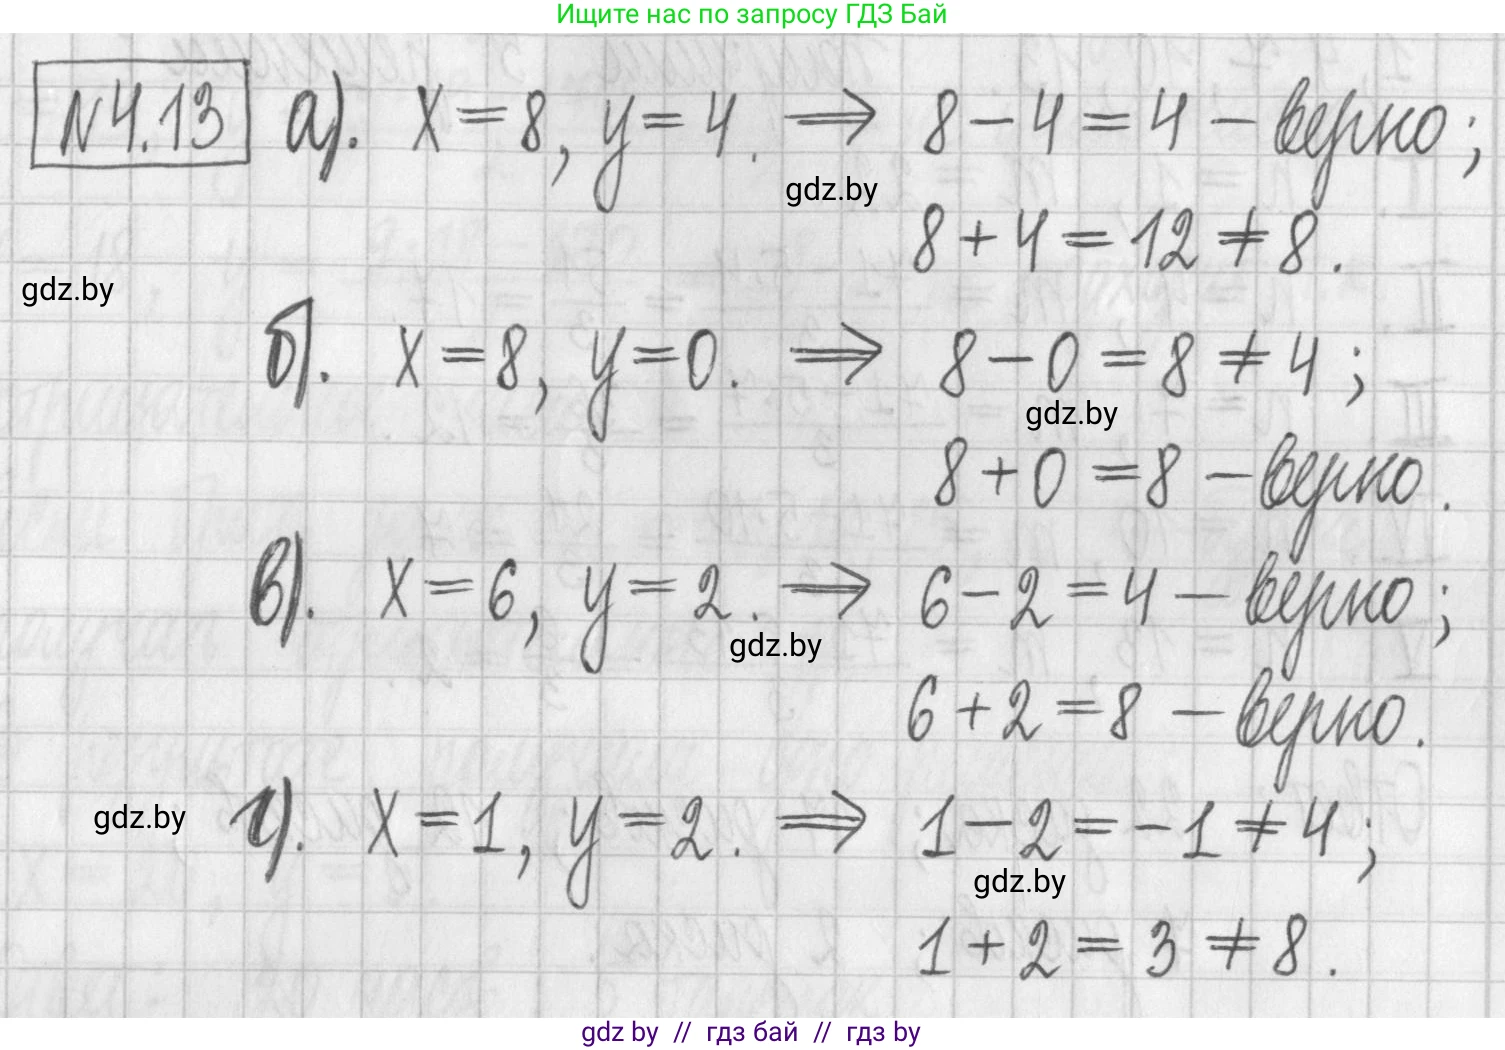 Ищите нас по запросу ГДЗ Бай
№4.13 а). x = 8, y = 4. ⇒ 8 − 4 = 4 − верно;
gdz.by
8 + 4 = 12 ≠ 8.
gdz.by
б). x = 8, y = 0. ⇒ 8 − 0 = 8 ≠ 4;
gdz.by
8 + 0 = 8 − верно.
в). x = 6, y = 2. ⇒ 6 − 2 = 4 − верно;
gdz.by
6 + 2 = 8 − верно.
г). x = 1, y = 2. ⇒ 1 − 2 = −1 ≠ 4;
gdz.by
gdz.by
1 + 2 = 3 ≠ 8.
gdz by // гдз бай // гдз by